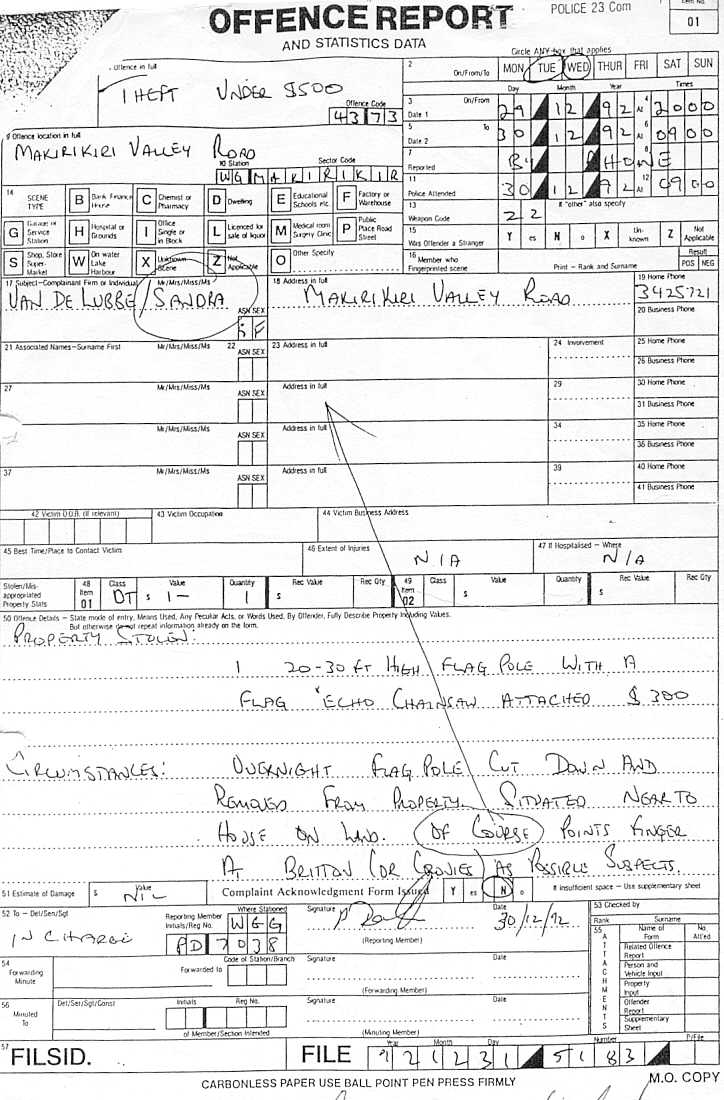 OFFENCE REPORT
AND STATISTICS DATA
POLICE 23 Com
Item No.
01
Offence in full
THEFT UNDER $500
Offence Code
4373
Circle ANY box that applies
2 On/From/To MON TUE WED THUR FRI SAT SUN
Day Month Year Times
3 On/From
Date 1 29 12 92 At 4 2000
5 To
Date 2 30 12 92 At 6 0900
7
Reported BY PHONE 8
11
Police Attended 30 12 92 At 12 0900
9 Offence location in full
MAKIRIKIRI VALLEY ROAD
10 Station Sector Code
WG MAKIRIKIR
13 If "other" also specify
Weapon Code 22
14 SCENE TYPE
B Bank Finance House
C Chemist or Pharmacy
D Dwelling
E Educational Schools etc.
F Factory or Warehouse
G Garage or Service Station
H Hospital or Grounds
I Office Single or in Block
L Licenced for sale of liquor
M Medical room Surgery Clinic
P Public Place Road Street
S Shop, Store Super-Market
W On water Lake Harbour
X Unknown Scene
Z Not Applicable
O Other Specify
15
Was Offender a Stranger Y es N o X Un-known Z Not Applicable
16 Member who Fingerprinted scene Print – Rank and Surname Result POS NEG
17 Subject–Complainant Firm or Individual Mr/Mrs/Miss/Ms
VAN DE LUBBE/SANDRA
ASN SEX
F
18 Address in full
MAKIRIKIRI VALLEY ROAD
19 Home Phone
3425721
20 Business Phone
21 Associated Names–Surname First Mr/Mrs/Miss/Ms 22 ASN SEX 23 Address in full 24 Involvement 25 Home Phone
26 Business Phone
27 Mr/Mrs/Miss/Ms ASN SEX Address in full 29 30 Home Phone
31 Business Phone
Mr/Mrs/Miss/Ms ASN SEX Address in full 34 35 Home Phone
36 Business Phone
37 Mr/Mrs/Miss/Ms ASN SEX Address in full 39 40 Home Phone
41 Business Phone
42 Victim D.O.B. (if relevant) 43 Victim Occupation 44 Victim Business Address
45 Best Time/Place to Contact Victim 46 Extent of Injuries N/A 47 If Hospitalised – Where N/A
Stolen/Mis-appropriated Property Stats 48 Item 01 Class DT Value $ 1– Quantity 1 Rec Value $ Rec Qty 49 Item 02 Class Value $ Quantity Rec Value $ Rec Qty
50 Offence Details – State mode of entry, Means Used, Any Peculiar Acts, or Words Used, By Offender, Fully Describe Property Including Values.
But otherwise do not repeat information already on the form.
PROPERTY STOLEN:
1 20-30 ft HIGH FLAG POLE WITH A
FLAG 'ECHO CHAINSAW ATTACHED $300
CIRCUMSTANCES: OVERNIGHT FLAG POLE CUT DOWN AND
REMOVED FROM PROPERTY. SITUATED NEAR TO
HOUSE ON LAND. OF COURSE POINTS FINGER
AT BRITTON (OR CRONIES) AS POSSIBLE SUSPECTS.
51 Estimate of Damage $ Value NIL Complaint Acknowledgment Form Issued Y es N o If insufficient space – Use supplementary sheet
52 To – Det/Sen/Sgt
IN CHARGE
Reporting Member Initials/Reg No. Where Stationed
WGG
PD 7038
Signature
(Reporting Member)
Date
30/12/92
53 Checked by
Rank Surname
54
Forwarding Minute Forwarded to Code of Station/Branch Signature (Forwarding Member) Date
55 ATTACHMENTS
Name of Form No. Att'ed
Related Offence Report
Person and Vehicle Input
Property Input
Offender Report
Supplementary Sheet
56
Minuted To Det/Ser/Sgt/Const Initials Reg No. of Member/Section Intended Signature (Minuting Member) Date
57
FILSID. FILE Year Month Day Number P/File
921231 5183
CARBONLESS PAPER USE BALL POINT PEN PRESS FIRMLY
M.O. COPY